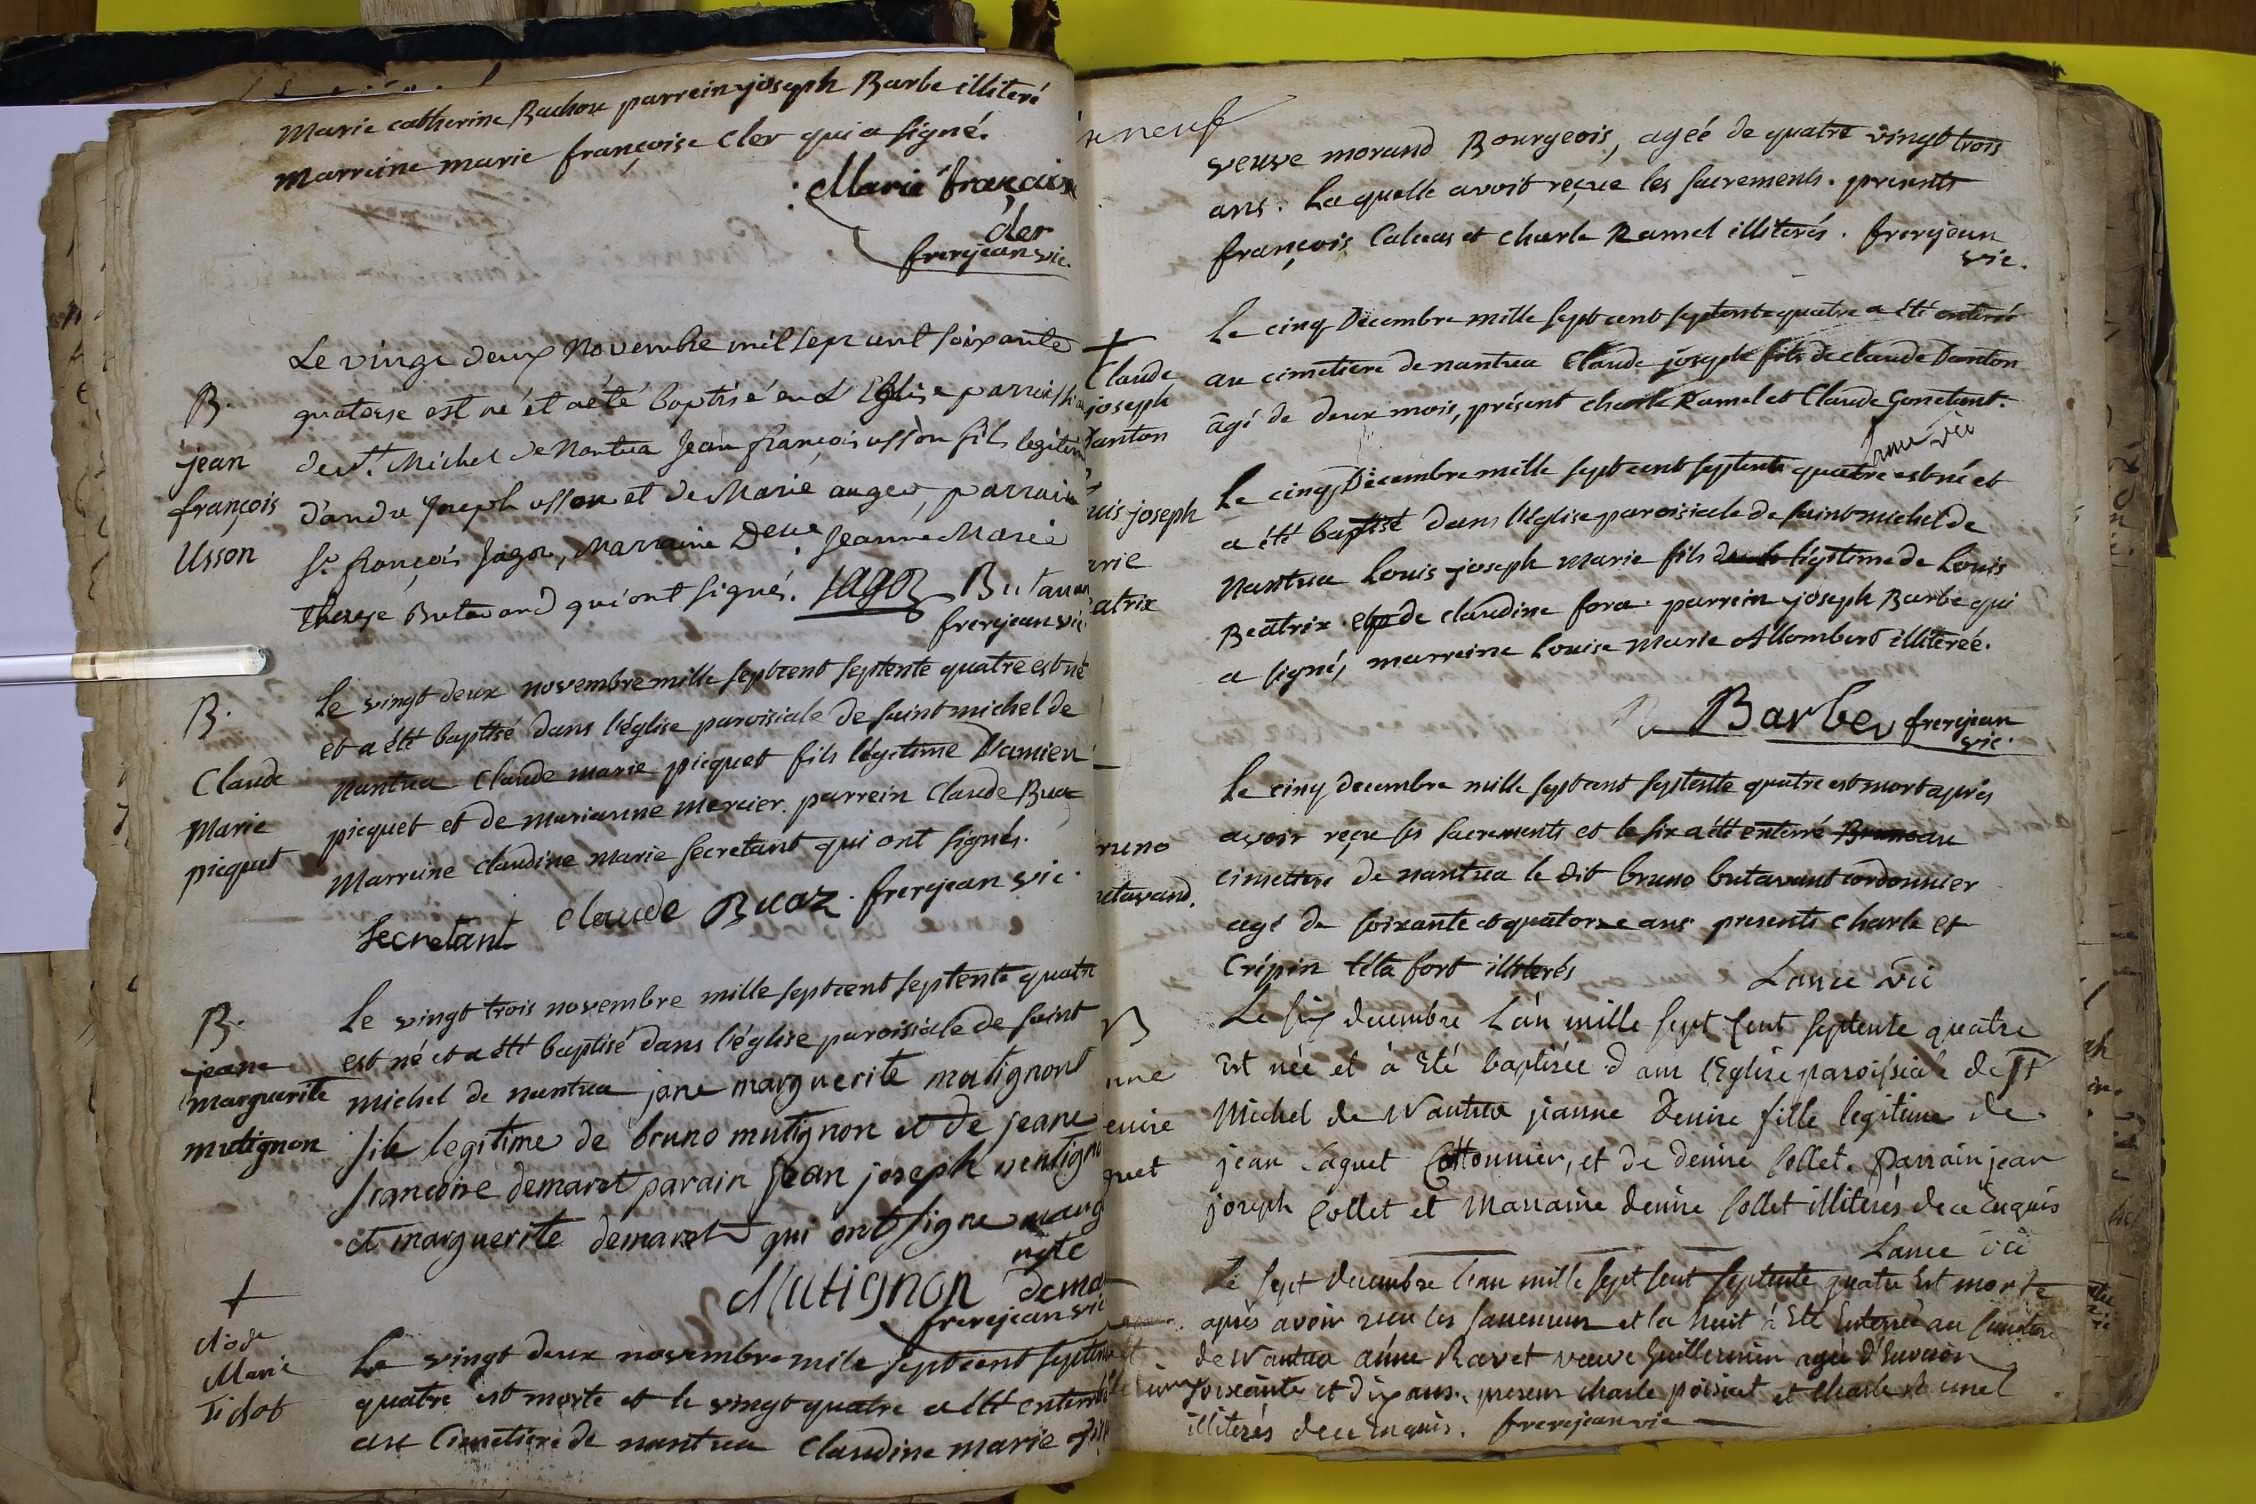 Marie catherine Bachou parrein joseph Barbe illiteré
marreine marie françoise cler qui a signé.
Marie françoise
cler
frerejean vic.
B.
jean
françois
Usson
Le vingt deux Novembre mil sept cent soixante
quatorse est né et a été baptisé en L'Eglise parroissia
de St. Michel de Nantua Jean françois usson fils legitim
d'andré Joseph usson et de Marie auger, parrain
Sr. françois Jagot, Marraine Delle Jeanne Marie
therese Butavand qui ont signé. Jagot Butavan
frerejean vic.
B.
Claude
Marie
picquet
Le vingt deux novembre mille septcent septente quatre est né
et a été baptisé dans l'église paroisiale de saint michel de
Nantua Claude marie picquet fils légitime Damien
picquet et de marianne mercier. parrein Claude Buaz
Marreine claudine marie secretant qui ont signés.
Secretant claude Buaz. frerejean vic.
B.
jeane
marguerite
mutignon
Le vingt trois novembre mille septcent septente quatre
est né et a été baptisé dans l'église paroisiale de saint
michel de nantua jane marguerite mutignont
file legitime de bruno mutignon et de jeane
francoise demaret parain jean joseph mutigno
et marguerite demaret qui ont signe marg
rite
Mutignon dema
frerejean vic
+
Clode
Marie
Tichot
Le vingt deux novembre mile septcent septen
quatre est morte et le vingt quatre a été enterré
au Cimetiere de nantua Claudine marie
neuf
veuve morand Bourgeois, agéé de quatre vingt trois
ans. Laquelle avoit reçue les sacrements. presents
françois Calvas et charle Ramel illiterés. frerejean
vic.
+
Claude
joseph
Danton
Le cinq Décembre mille sept cent septente quatre a été enterré
au cimetiere de nantua Claude joseph fils de claude Danton
âgé de deux mois, présent charle Ramel et Claude Gonetant.
Lance vic
uis joseph
arie
atrix
Le cinq Décembre mille sept cent septente quatre est né et
a été baptisé dans l'église paroisiale de saint michel de
Nantua Louis joseph marie fils légitime de Louis
Beatrix et de claudine fora. parrein joseph Barbe qui
a signé, marreine Louise Marie Allombert illiterée.
Barbe frerejean
vic.
runo
utavand.
Le cinq decembre mille sept cent septente quatre est mort après
avoir reçu ses sacrements et le six a été enterré au
cimettere de nantua le dit bruno butavant cordonnier
agé de soixante et quatorze ans presents charle et
Crépin téta fort illiterés
Lance vic
B
nne
enise
guet
Le six decembre L'an mille sept Cent septente quatre
Est née et à Eté baptisée dans l'Eglise paroissiale de St
Michel de Nantua jeanne Denise fille legitime de
jean Caguet Cottonnier, et de denise Collet. Parrain jean
joseph Collet et Marraine denise Collet illiterés de ce Enquis
Lance vic
Le sept decembre l'an mille sept Cent septente quatre Est morte
après avoir recu les sacremens et le huit à Eté Enterrée au Cimitere
de Nantua anne Ravet veuve Guillermin agée d'Environ
soixante et dix ans. presens charle poisiat et Charle Ramel
illiterés de ce Enquis. frerejean vic